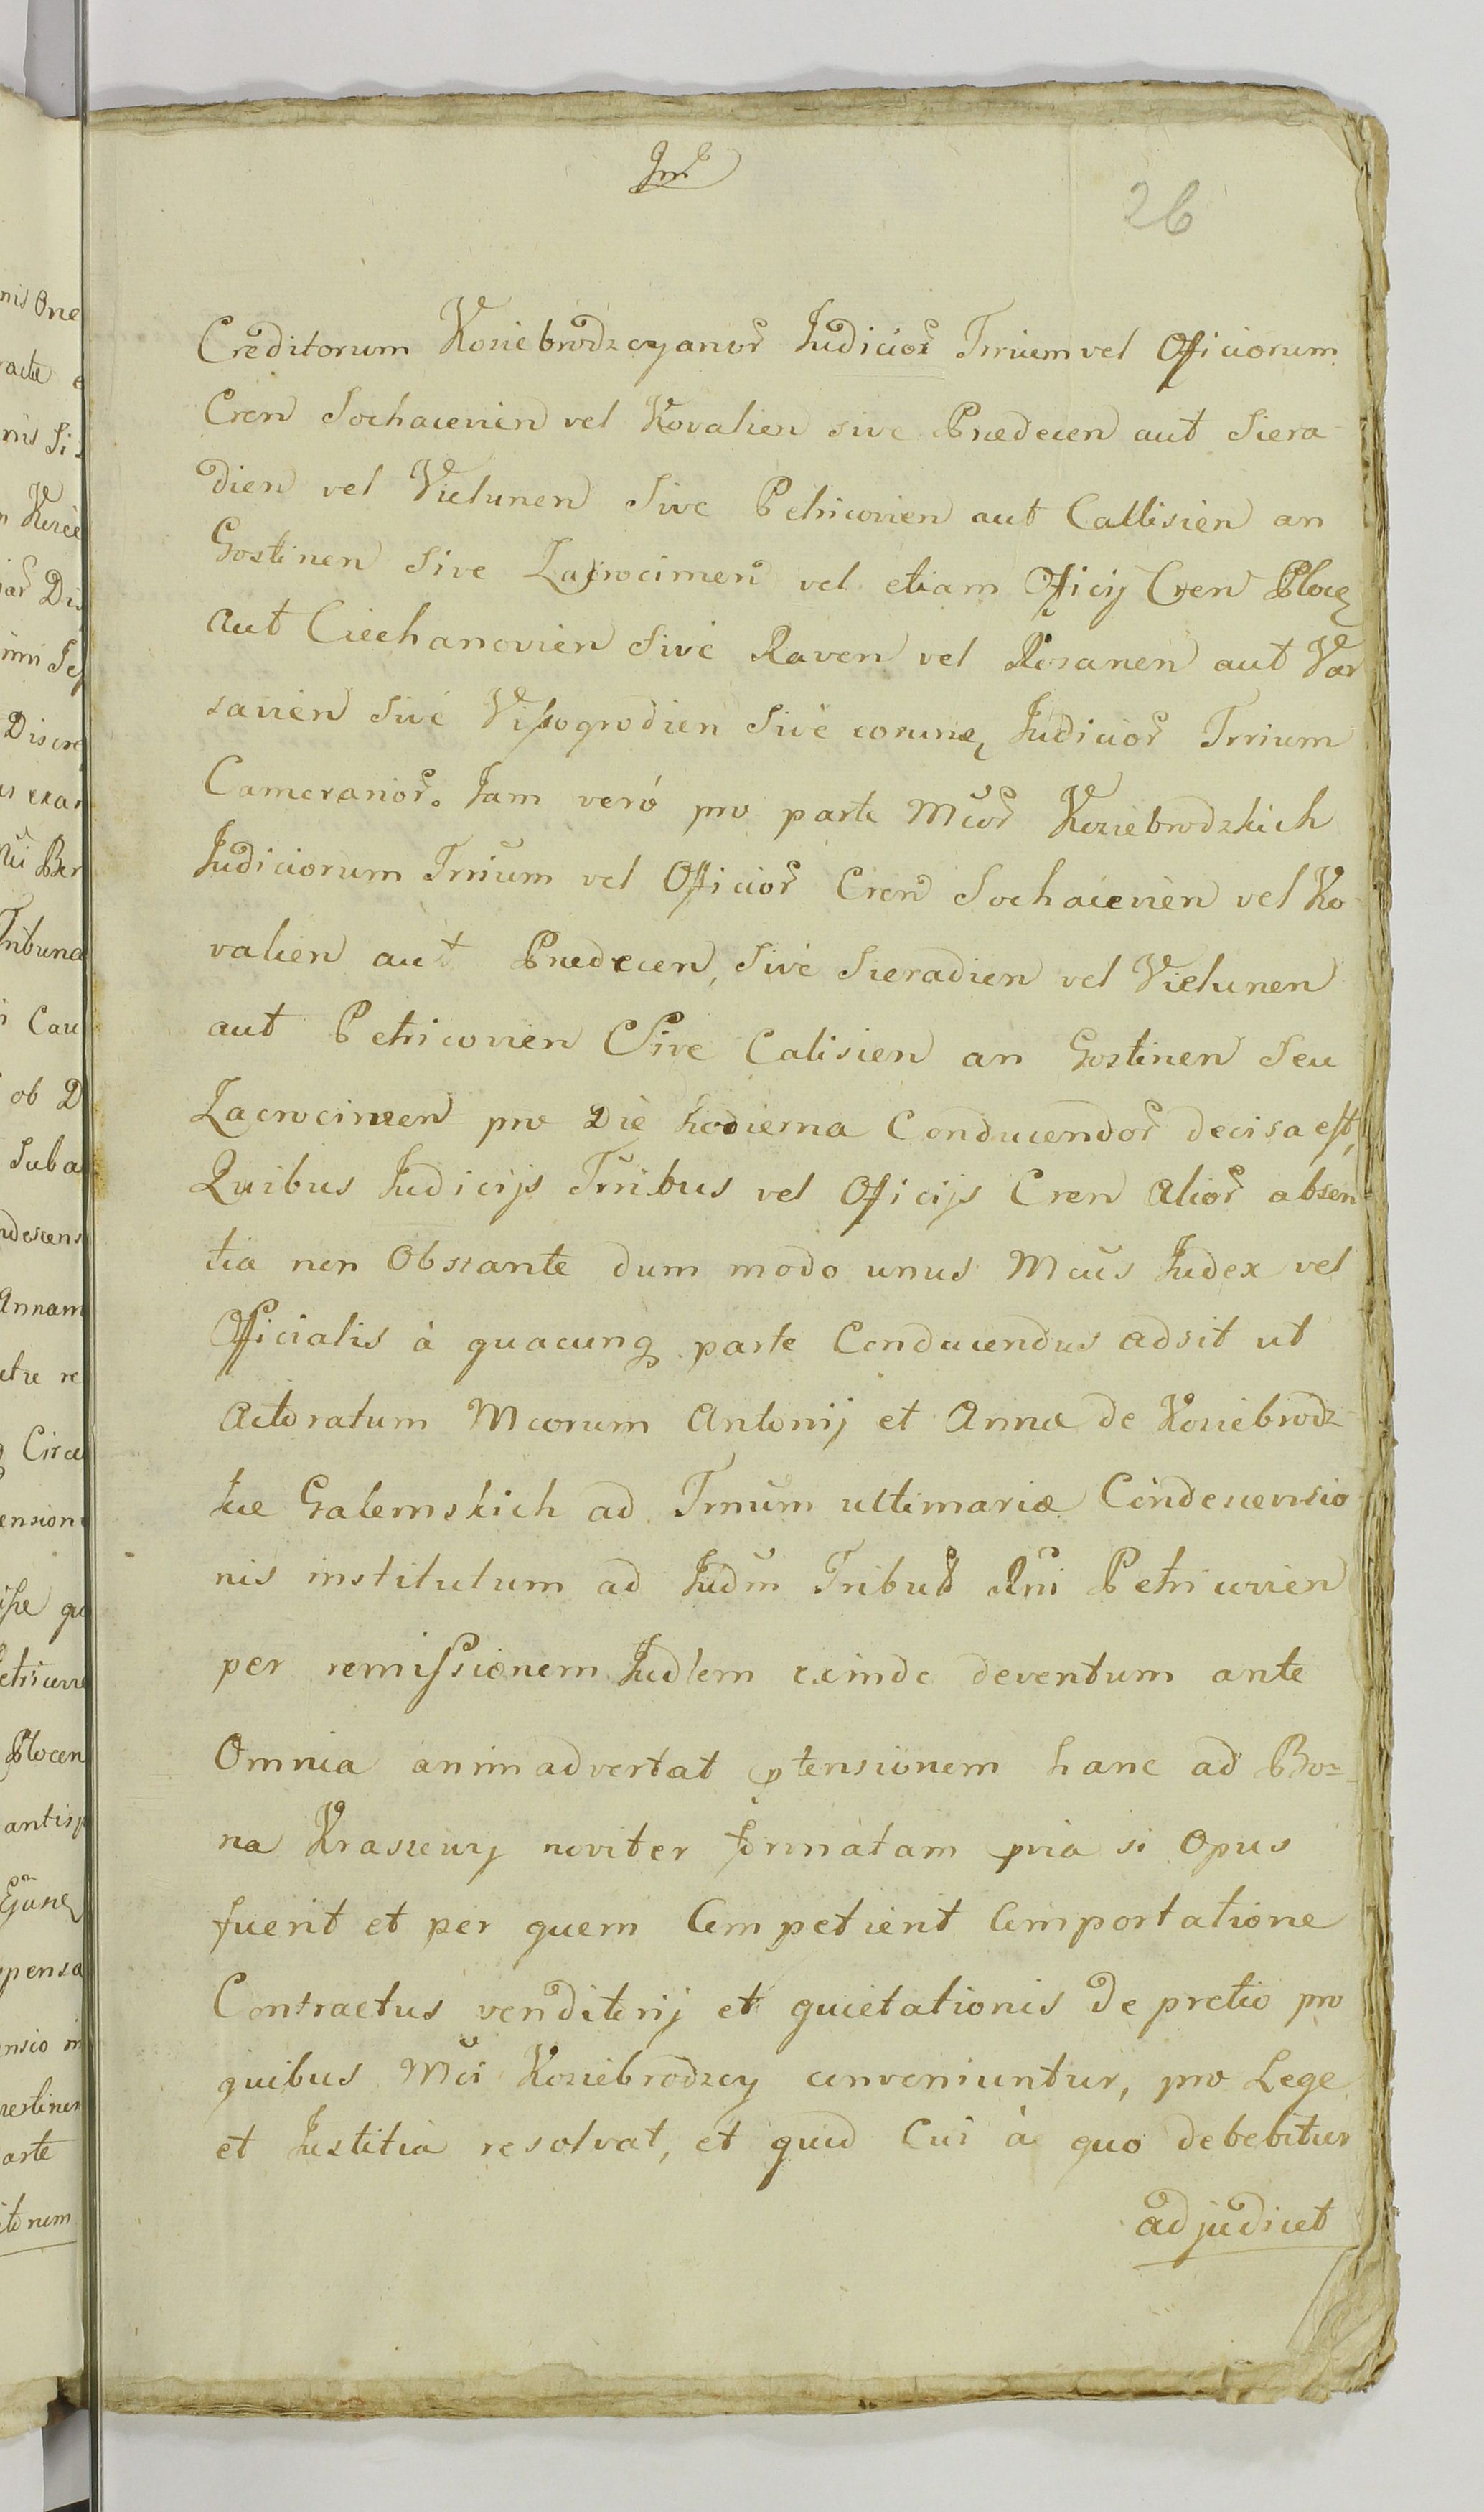 26
Creditorum Koziebrodzcyanor Judicior Trrium vel Officiorum
Cren Sochacevien vel Kovalien sive Prædecen aut Siera
dien vel Vielunen Sive Petricovien aut Callisien an
Gostinen Sive Zacrocimen vel etiam Officij Cren Ploce
aut Ciechanovien Sive Raven vel Rosanen aut Var
savien Sive Vissogrodien Sive eorune Judicior Trrium
Cameranior. Jam veró pro parte Mcor Koziebrodzkich
Judiciorum Trrium vel Officior Cren Sochacevien vel Ko
valien aut Prædecen, Sive Sieradien vel Vielunen
aut Petricovien Sive Calisien an Gostinen Seu
Zacrocimen pro Die hodierna Conducendor decisa est,
Quibus Judicijs Trribus vel Officijs Cren alior absen
tia non Obstante dum modo unus Mcus Judex vel
Officialis à quacunq parte Conducendus adsit ut
Actoratum Mcorum Antonij et Annæ de Koziebrodz
kie Galemskich ad Trnum ultimariæ Condescensio
nis institutum ad Judm Tribul Rni Petricovien
per remissionem Judlem exinde deventum ante
Omnia animadvertat ptensionem hanc ad Bo=
na Kraszewy noviter formatam pvia si Opus
fuerit et per quem Competierit Comportatione
Contractus venditorij et quietationis de pretio pro
quibus Mci Koziebrodzcy conveniuntur, pro Lege
et Justitia resolvat, et quid Cui à quo debebitur
adjudicet